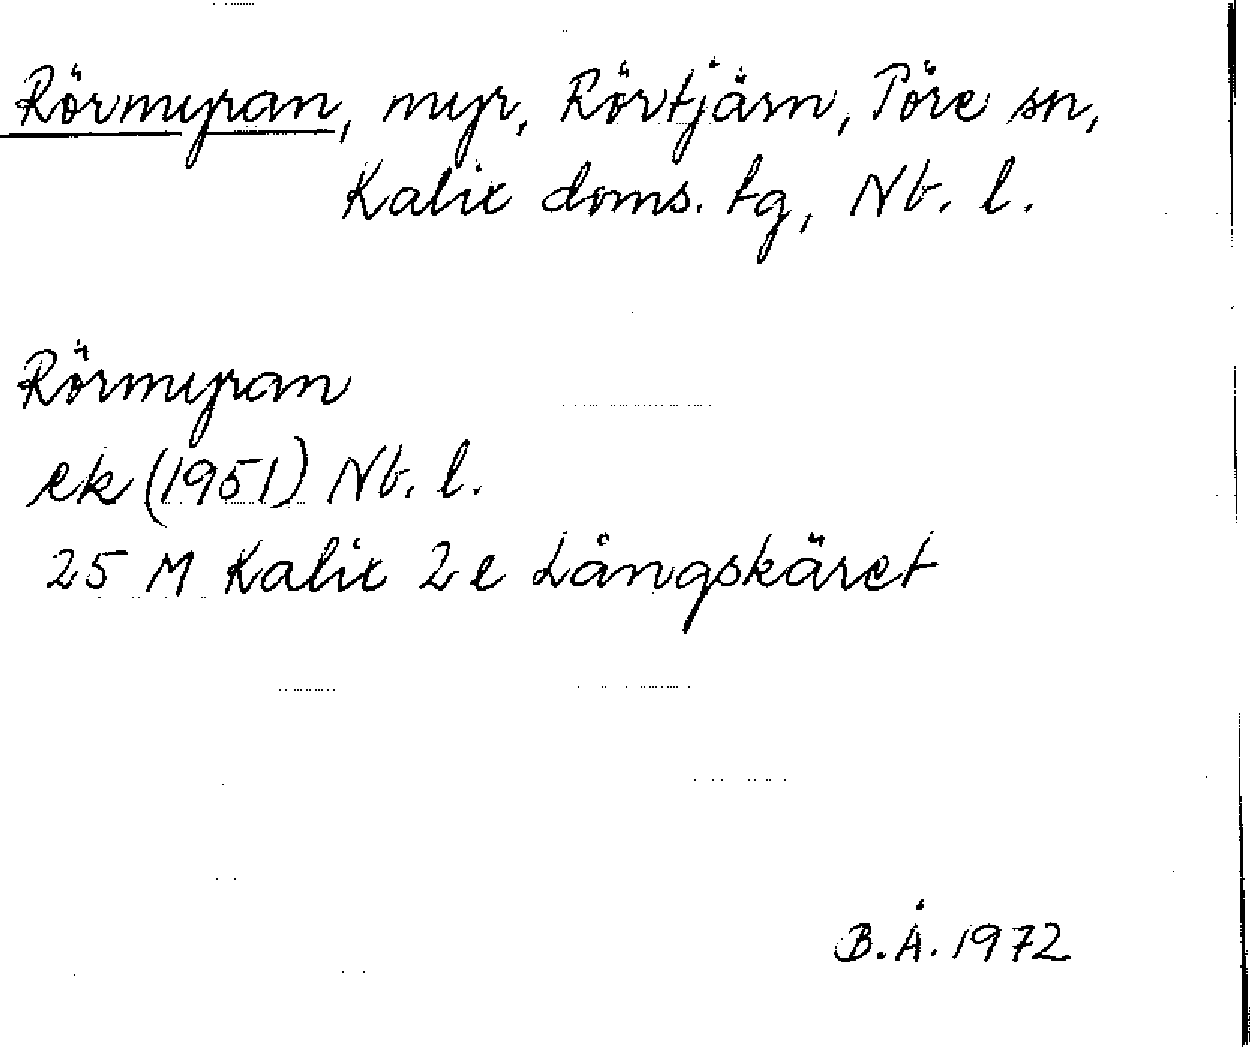 Rörmyran, myr, Rörtjärn, Töre sn,
Kalix doms. tg, Nb. l.
Rörmyran
ek (1951) Nb. l.
25 M Kalix 2 e Långskäret
B.Å. 1972